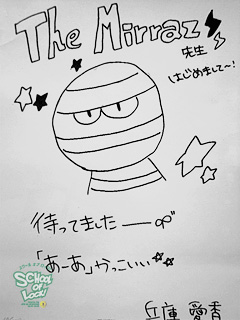 The Mirraz
先生
はじめまして〜!
待ってました——∞
「あーあ」かっこいい
SCHOOL OF LOCK!
兵庫 愛香